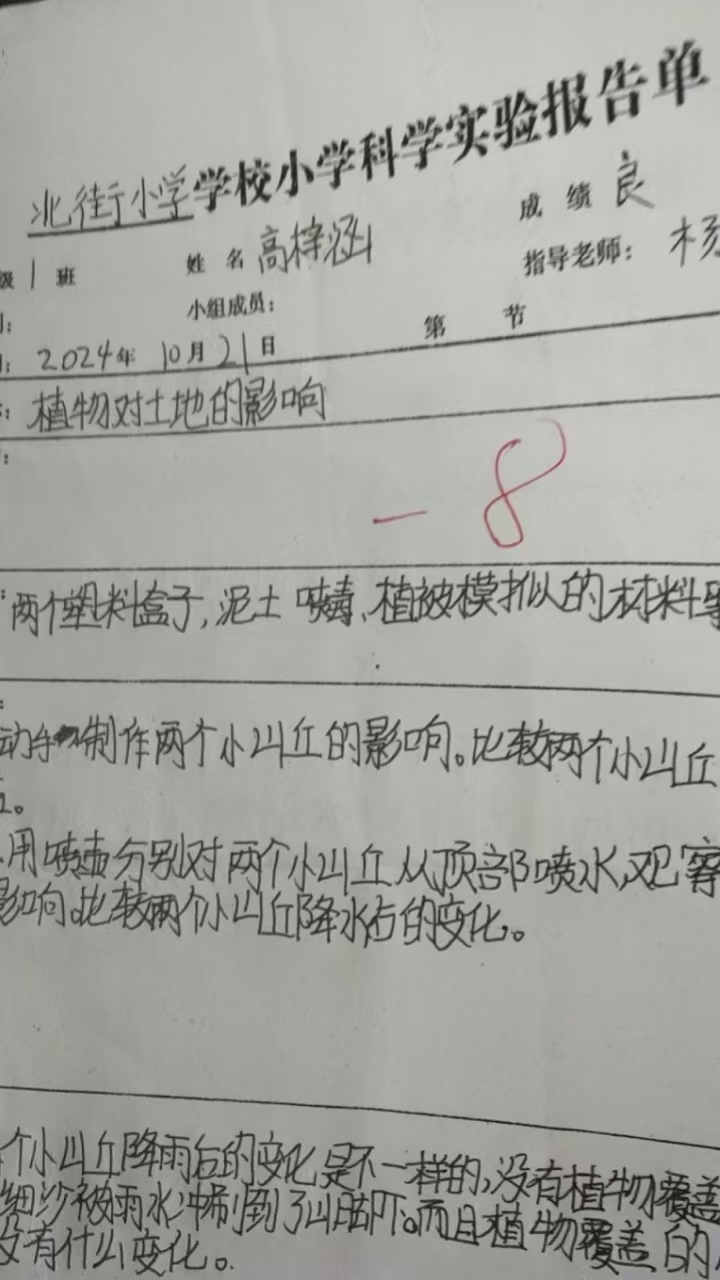 北街小学学校小学科学实验报告单
成 绩 良
级 1 班 姓 名 高梓涵 指导老师： 杨
小组成员：
第 节
2024年 10月21日
植物对土地的影响
-8
两个塑料盒子，泥土 喷壶、植被模拟的材料等
动手制作两个小山丘的影响。比较两个小山丘
用喷壶分别对两个小山丘从顶部喷水，观察
影响。比较两个小山丘降水后的变化。
个小山丘降雨后的变化是不一样的，没有植物覆盖
细沙被雨水冲刷到了山脚下。而且植物覆盖的
没有什么变化。